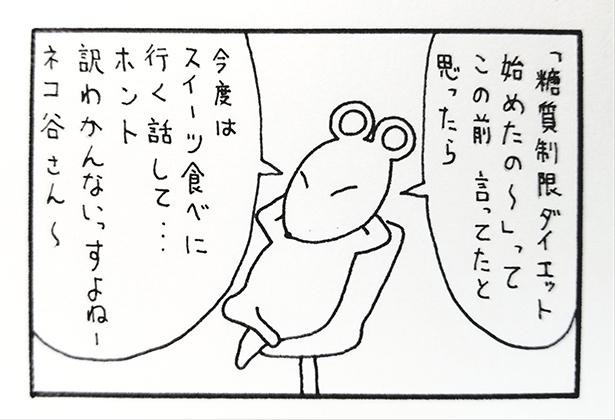 「糖質制限ダイエット
始めたの〜」って
この前 言ってたと
思ったら
今度は
スイーツ食べに
行く話して…
ホント
訳わかんないっすよねー
ネコ谷さん〜